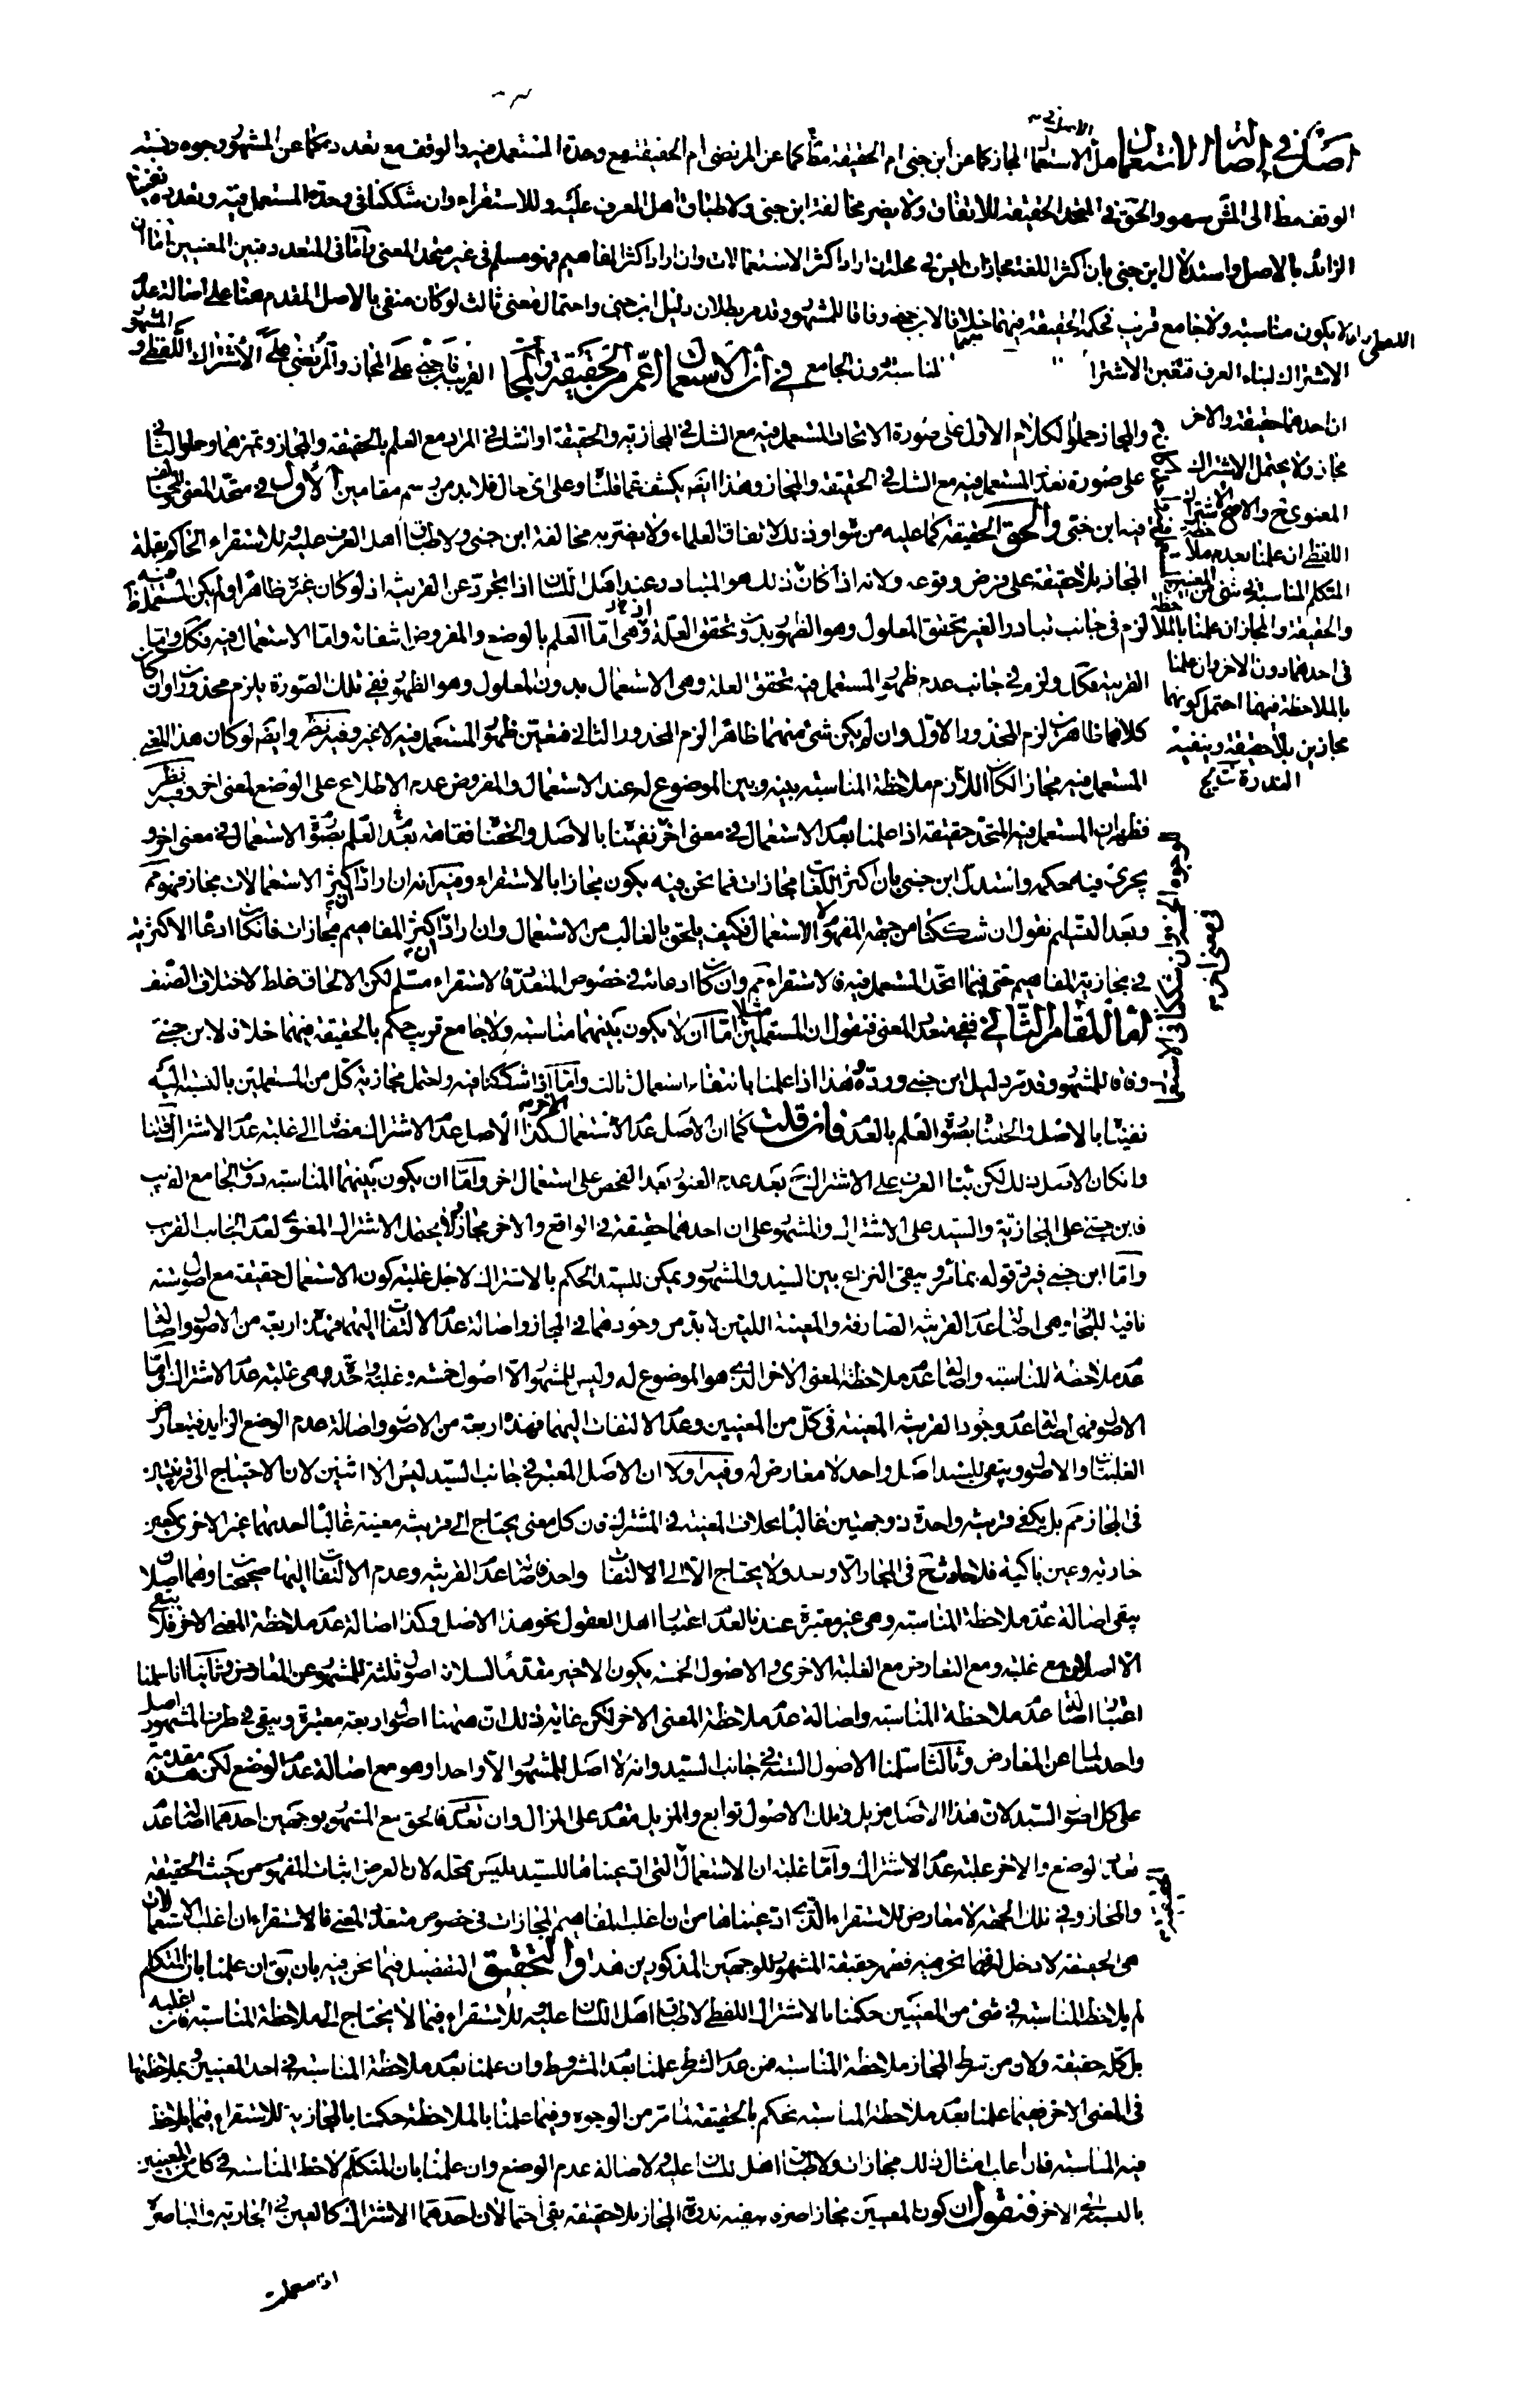 اصل في اصالة الاستعمال هل الاستعمال المجاز كما عن ابن جنى ام الحقيقة مطا كما عن المرتضى ام الحقيقة مع وحدة المستعمل فيه والوقف مع تعدده كما عن المشهور وجوه ونسبة
الوقف مط الى المش سهو والحق في المتحد الحقيقة للاتفاق ولا يضر مخالفة ابن جنى ولاطباق اهل العرف عليه وللاستقراء وان شككنا في وحدة المستعمل فيه وتعدده نفينا
الزائد بالاصل واستدلال ابن جنى بان اكثر اللغة مجازات ليس في محله ان اراد اكثر الاستعمالات وان اراد اكثر المفاهيم فهو مسلم في غير متحد المعنى واما في المتعدد فبين المعنيين اما ان
لا يكون مناسبة ولا جامع قريب فحكمه الحقيقة فيهما خلافا لابن جنى وفاقا للمشهور وقد مر بطلان دليل ابن جنى واحتمال معنى ثالث لو كان منفى بالاصل المقدم هنا على اصالة عدم
الاشتراك لبناء العرف فتعين الاشترا
المناسبة دون الجامع القريب فابن جنى على المجاز والمرتضى على الاشتراك اللفظى والمشهو
في ان الاستعمال اعم من الحقيقة والمجاز
ان احدهما حقيقة والاخر
مجاز ولا يحتمل الاشتراك
المعنوى ح والاصح الاشتراك
اللفظى ان علمنا بعدم ملاحظة
المتكلم المناسبة في شئ من المعنيين
والحقيقة والمجاز ان علمنا بالملاحظة
في احدهما دون الاخر وان علمنا
بالملاحظة فيهما احتمل كونهما
مجازين بلا حقيقة وينفيه
الندرة
والمجاز حملوا لكلام الاول على صورة الاتحاد المستعمل فيه مع الشك في المجازية والحقيقة او الشك في المراد مع العلم بالحقيقة والمجاز وتميزهما وحملوا الثانى
على صورة تعدد المستعمل فيه مع الشك في الحقيقة والمجاز وهذا ايضا يكشف عما قلنا وعلى اى حال فلا بد من رسم مقامين الاول في متحد المعنى
فيه ابن جنى والحق الحقيقة كما عليه من سواه وذلك لاتفاق العلماء ولا يضر به مخالفة ابن جنى ولاطباق اهل العرف عليه وللاستقراء الحاكم بقلة
المجاز بلا حقيقة على فرض وقوعه ولانه اذا كان ذلك هو المتبادر عند اهل اللسان اذا تجرد عن القرينة اذ لو كان غيره ظاهرا ولم يكن المستعمل فيه
لزم في جانب تبادر الغير تحقق المعلول وهو الظهور بدون تحقق العلة وهى اما العلم بالوضع والمفروض انتفائه واما الاستعمال فيه فكك واما
القرينة فكك ولزم في جانب عدم ظهور المستعمل فيه تحقق العلة وهى الاستعمال بدون المعلول وهو الظهور ففى تلك الصورة يلزم محذوران وان كان
كلاهما ظاهرين لزم المحذور الاول وان لم يكن شئ منهما ظاهرا لزم المحذور الثانى فتعين ظهور المستعمل فيه لا غير وفيه نظر وايضا لو كان هذا المعنى
المستعمل فيه مجازا لكان اللازم ملاحظة المناسبة بينه وبين الموضوع له عند الاستعمال والمفروض عدم الاطلاع على الوضع لمعنى اخر وفيه نظر
فظهر ان المستعمل فيه المتحد حقيقة اذا علمنا بعدم الاستعمال في معنى اخر نفينا بالاصل والحقنا بعد العلم بصورة الاستعمال في معنى اخر و
يجرى فيه حكمه واستدل ابن جنى بان اكثر اللغات مجازات فما نحن فيه يكون مجازا بالاستقراء وفيه انه ان اراد اكثر الاستعمالات مجاز فهو مم
وبعد التسليم نقول ان شككنا من جهة المفهوم لا الاستعمال فكيف يلحق بالغالب من الاستعمال وان اراد اكثر المفاهيم مجازات فان كان ادعاء الاكثرية
في مجازية المفاهيم حتى فيما اتحد المستعمل فيه فالاستقراء مم وان كان ادعائه في خصوص المتعدد فالاستقراء مسلم لكن الالحاق غلط لاختلاف الصنف
اما المقام الثانى ففى متعدد المعنى فنقول ان المستعملين مثلا اما ان لا يكون بينهما مناسبة ولا جامع قريب حكم بالحقيقة فيهما خلافا لابن جنى
وفاقا للمشهور وقد مر دليل ابن جنى ورده هذا اذا علمنا بانتفاء استعمال ثالث واما اذا شككنا فيه واحتمل مجازية كل من المستعملين بالنسبة اليه
نفينا بالاصل والحقنا بصورة العلم بالعدم فان قلت كما ان الاصل عدم الاستعمال كذا الاصل عدم الاشتراك مضافا الى غلبة عدم الاشتراك قلنا
وان كان الاصل ذلك لكن بناء العرف على الاشتراك ح بعد عدم العثور بعد الفحص على استعمال اخر واما ان يكون بينهما المناسبة دون الجامع القريب
فابن جنى على المجازية والسيد على الاشتراك والمشهور على ان احدهما حقيقة في الواقع والاخر مجاز ولا يحتمل الاشتراك المعنوى لعدم الجانب القريب
واما ابن جنى فيرد قوله بما مر ويبقى النزاع بين السيد والمشهور ويمكن للسيد الحكم بالاشتراك لاجل غلبة كون الاستعمال حقيقة مع اصول ستة
نافية للمجاز وهى اصالتا عدم القرينة الصارفة والمعينة اللتين لا بد من وجودهما في المجاز واصالة عدم الالتفات اليهما فهذه اربعة من الاصول واصالة
عدم ملاحظة المناسبة واصالة عدم ملاحظة المعنى الاخر الذى هو الموضوع له وليس للمشهور الا اصول خمسة وغلبة واحدة وهى غلبة عدم الاشتراك واما
الاصول فهى اصالتا عدم وجود القرينة المعينة في كل من المعنيين وعدم الالتفات اليهما فهذه اربعة من الاصول واصالة عدم الوضع الزايد فيتعارض
الغلبتان والاصول ويبقى للسيد اصل واحد لا معارض له وفيه اولا ان الاصل المعتبر في جانب السيد ليس الا اثنين لان الاحتياج الى قرينتين
في المجاز مم بل يكفى قرينة واحدة ذو جهتين غالبا بخلاف المعينة في المشترك فان كل معنى يحتاج الى قرينة معينة غالبا احديهما غير الاخرى كعين
جارية وعين باكية فلا حادث ح في المجاز الا واحد ولا يحتاج الا الى الالتفات واحد فاصالتا عدم القرينة وعدم الالتفات اليها صحيحتان وهما اصلان
يبقى اصالة عدم ملاحظة المناسبة وهى غير معتبرة عندنا لعدم اعتبار اهل العقول نحو هذا الاصل وكذا اصالة عدم ملاحظة المعنى الاخر فلا يبقى
الا اصلان مع غلبة ومع التعارض مع الغلبة الاخرى والاصول الخمسة يكون الاخير مقدما لسلامة اصول ثلثة للمشهور عن المعارض وثانيا انا سلمنا
اعتبار اصالة عدم ملاحظة المناسبة واصالة عدم ملاحظة المعنى الاخر لكن غاية ذلك ان هيهنا اصول اربعة معتبرة ويبقى في طرف المشهور اصل
واحد سالما عن المعارض وثالثا سلمنا الاصول الستة في جانب السيد وانه لا اصل للمشهور الا واحدا وهو مع اصالة عدم الوضع لكن هذه مقدمة
على كل اصول السيد لان هذا الاصل مزيل وتلك الاصول توابع والمزيل مقدم على المزال وان تعدد فالحق مع المشهور بوجهين احدهما اصالة عدم
تعدد الوضع والاخر غلبة عدم الاشتراك واما غلبة ان الاستعمال التى ادعيناها للسيد فليس بمحله لان الغرض اثبات المفهوم من حيث الحقيقة
والمجاز وفي تلك الجهة لا معارض للاستقراء الذى ادعيناها من ان اغلب المفاهيم المجازات في خصوص متعدد المعنى فالاستقراء ان اغلب الاستعمالات
هى الحقيقة لا دخل له فيما نحن فيه فظهر حقيقة المشهور للوجهين المذكورين هذا والتحقيق التفصيل فيما نحن فيه بان يق ان علمنا بان المتكلم
لم يلاحظ المناسبة في شئ من المعنيين حكمنا بالاشتراك اللفظى لاطباق اهل اللسان عليه وللاستقراء فيما لا يحتاج الى ملاحظة المناسبة فان اغلبه
بل كله حقيقة ولان من شرط المجاز ملاحظة المناسبة فمن عدم الشرط علمنا بعدم المشروط وان علمنا بعدم ملاحظة المناسبة في احد المعنيين وبملاحظتها
في المعنى الاخر ففيما علمنا بعدم ملاحظة المناسبة نحكم بالحقيقة لما مر من الوجوه وفيما علمنا بالملاحظة حكمنا بالمجازية للاستقراء فيما يلاحظ
فيه المناسبة فان اغلب امثال ذلك مجازات ولاطباق اهل اللسان عليه ولاصالة عدم الوضع وان علمنا بان المتكلم لاحظ المناسبة في كل من المعنيين
بالنسبة الى الاخر فنقول ان كون المعنيين مجازا صرفا ينفيه ندرة المجاز بلا حقيقة بقى احتمالان احدهما الاشتراك كالعين في الجارية والباصرة